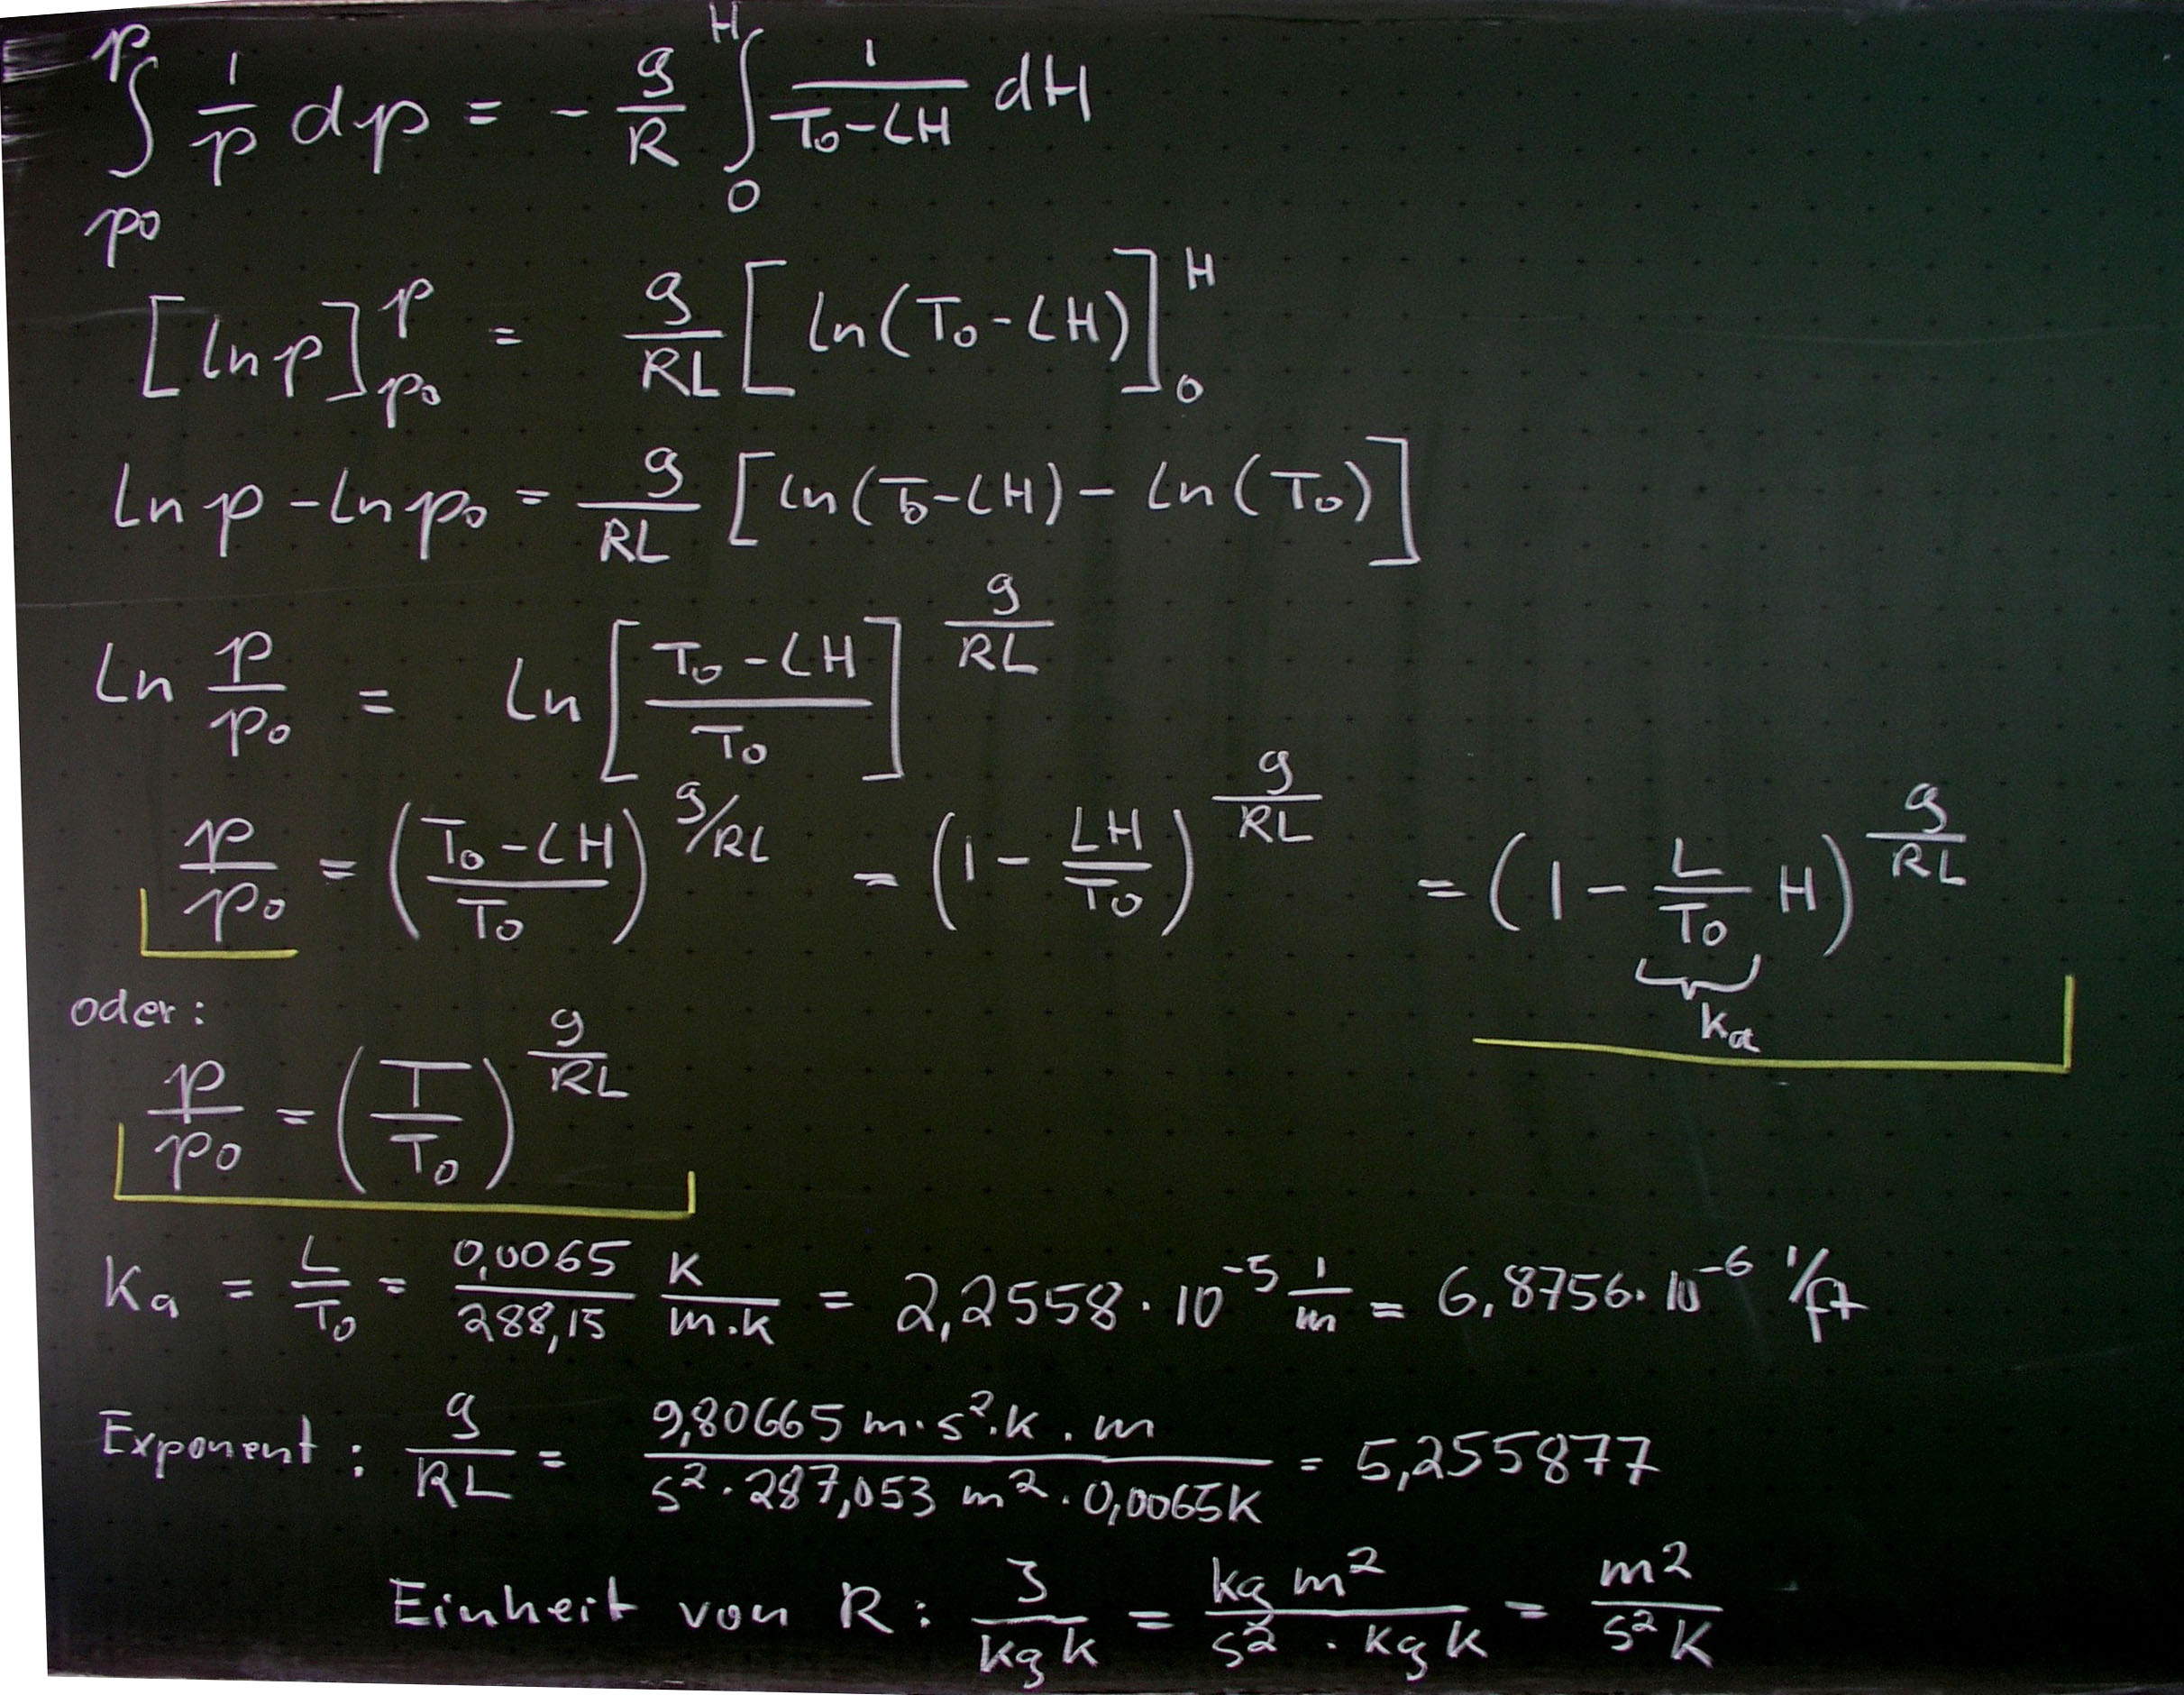 ∫_{p0}^{p} 1/p dp = - g/R ∫_{0}^{H} 1/(T₀-LH) dH
[ln p]_{p₀}^{p} = g/RL [ln(T₀-LH)]_{0}^{H}
ln p - ln p₀ = g/RL [ln(T₀-LH) - ln(T₀)]
ln p/p₀ = ln [(T₀-LH)/T₀]^{g/RL}
p/p₀ = ((T₀-LH)/T₀)^{g/RL} = (1 - LH/T₀)^{g/RL} = (1 - L/T₀ H)^{g/RL}
ka
oder:
p/p₀ = (T/T₀)^{g/RL}
Ka = L/T₀ = 0,0065/288,15 K/(m·K) = 2,2558·10⁻⁵ 1/m = 6,8756·10⁻⁶ 1/ft
Exponent: g/RL = (9,80665 m·s²·K·m)/(s²·287,053 m²·0,0065K) = 5,255877
Einheit von R: J/(kg K) = (kg m²)/(s²·kg K) = m²/(s² K)